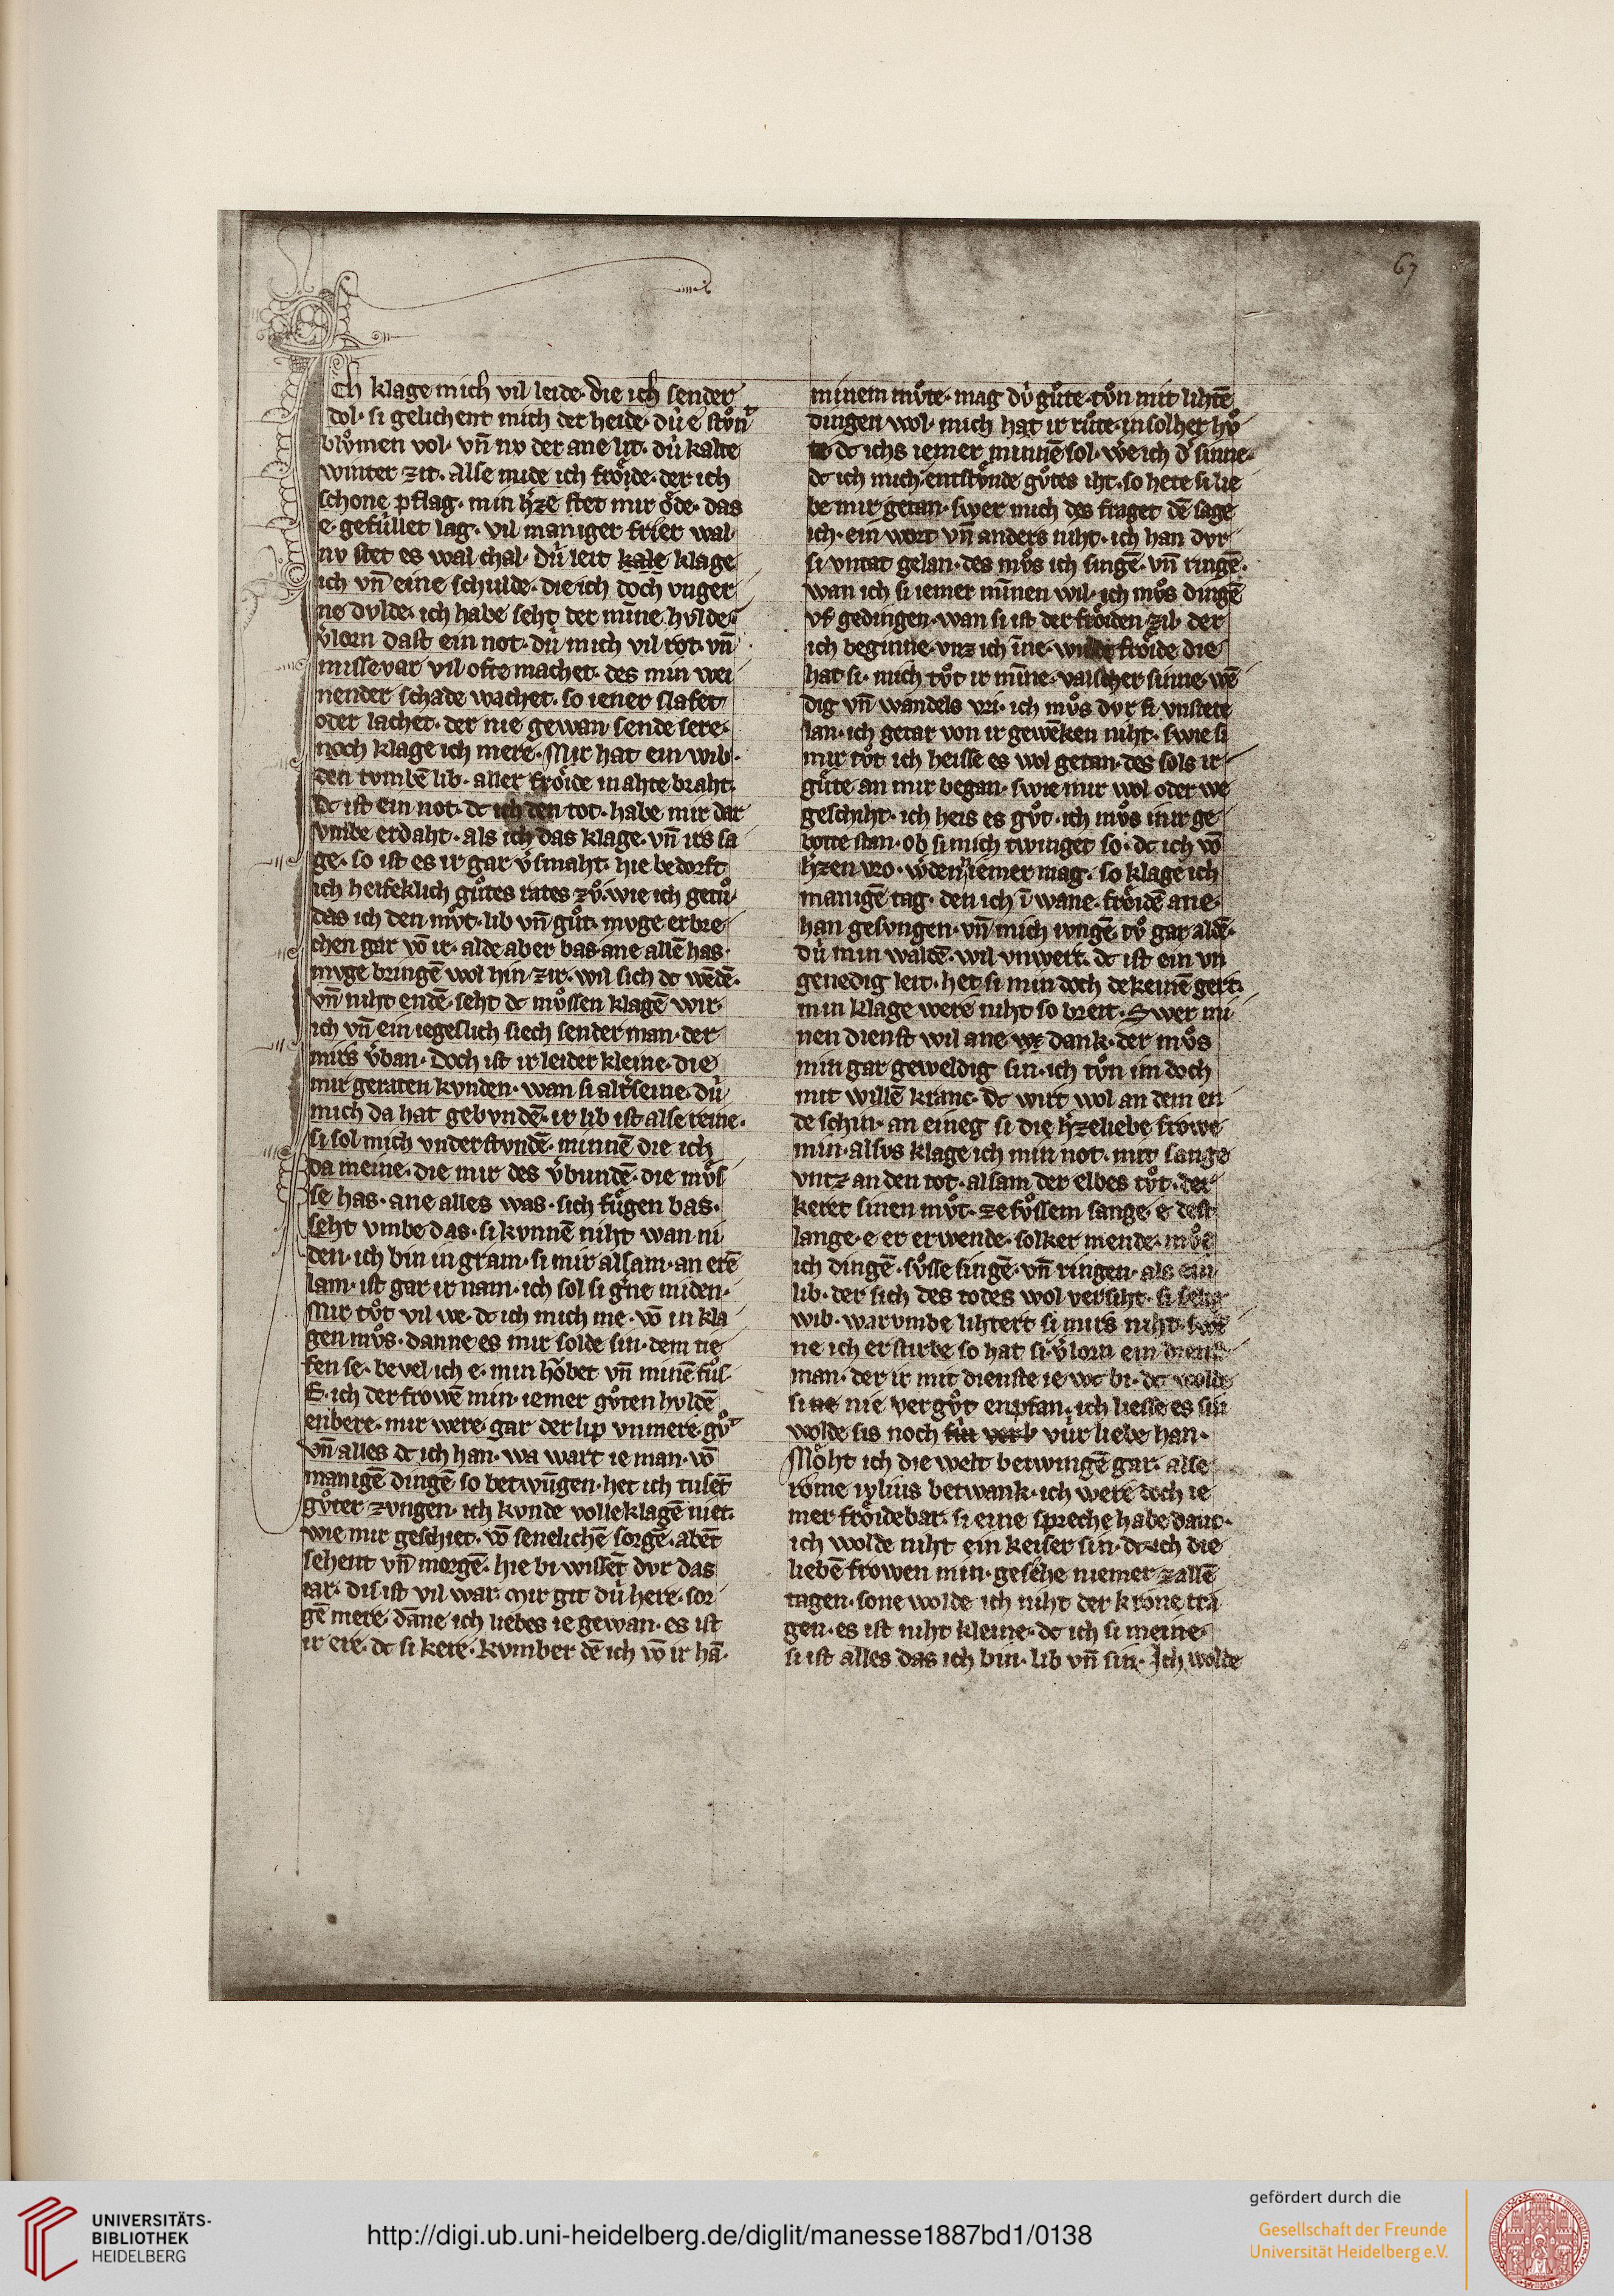 67
Ich klage mich vil leide· die ich sender
dol· si gelichent mich der heide· dú e stv̊nt
blv̊men vol· vn̄ nv der ane lit· dú kalte
winter zit· Alse mide ich frȯide· der ich
schone pflag· min h'ze stet mir ȯde· das
e· gefúllet lag· vil maniger frier wal·
nv stet es wal chal· dú leit kale klage
ich vn̄ eine schulde· die ich doch vnger
ne dvlde· ich habe seht der mīne hvlde·
v'lorn dast ein not· dú mich vil rot· vn̄
missevar vil ofte machet· des min wei
nender schade wachet· so iener slafet
oder lachet· der nie gewan sende sere·
noch klage ich mere· Mir hat ein wib·
den tvmbē lib· aller frȯide in ahte braht·
dc ist ein not· dc ich den tot· habe mir dar
vmbe erdaht· als ich das klage· vn̄ irs sa
ge· so ist es ir gar v'smaht· hie bedorft
ich heifeklich gv̊tes rates zv̊· wie ich getv̊·
das ich den mv̊t· lib vn̄ gv̊t· mvge erbre
chen gar vō ir· alde aber bas· ane allē has·
mvge bringē wol hin zir· wil sich dc wēdē·
vn̄ niht endē· seht dc mv̊ssen klagē wir·
ich vn̄ ein iegeslich siech sender man· der
mirs v'ban· Doch ist ir leider kleine· die
mir geraten kvnden· wan si alt'seine· dú
mich da hat gebvndē· ir lib ist alse reine·
si sol mich vnderstvndē· minnē die ich
da meine· die mir des v'bundē· die mv̊s
se has· ane alles was· sich fu̇gen bas·
seht vmbe das· si kvnnē niht wan ni
den· ich bin in gram· si mir alsam· an erē
lam· ist gar ir nam· ich sol si g'ne miden·
Mir tv̊t vil we· dc ich mich me· vō in kla
gen mv̊s· danne es mir solde sin· dem tie
fen se· bevel ich e· min hȯbet vn̄ minē fu̇s·
E· ich der frowē min· iemer gv̊ten hvldē
enbere· mir were gar der lip vnmere gv̊t
vn̄ alles dc ich han· wa wart ie man· vō
manigē dingē so betwūgen· het ich tusēt
gv̊ter zvngen· ich kvnde volleklagē niet·
wie mir geschiet· vō senelichē sorgē· abēt
sehent vn̄ morgē· hie bi wissēt dvr das
iar· dis ist vil war· Mir git dú here· sor
gē mere· dāne ich liebes ie gewan· es ist
ir ere· dc si kere· kvmber dē ich vō ir hā·
minem mv̊te· mag dú gv̊te· tv̊n mit lihtē
dingen wol· mich hat ir rv̊te· in solher hv̊
te dc ichs iemer minnē sol· we ich d' sinne·
dc ich mich· entstv̊nde gv̊tes iht· so hete si lie
be mir getan· swer mich des fraget dē sage
ich· ein wort vn̄ anders niht· ich han dvr
si vntat gelan· des mv̊s ich singē· vn̄ ringē·
wan ich si iemer mīnen wil· ich mv̊s dingē
vf gedingen· wan si ist der frȯiden zil· der
ich beginne· vnz ich īne· frȯide die
hat si· mich tv̊t ir mīne· valscher sinne wē
dig vn̄ wandels vri· ich mv̊s dvr si vnstete
lan· ich getar von ir gewēken niht· swie si
mir tv̊t ich heisse es wol getan· des sols ir
gu̇te an mir began· swie mir wol oder we
geschiht· ich heis es gv̊t· ich mv̊s mir ge
botte stan· ob si mich twinget so· dc ich vō
h'zen vro· w'den niemer mag· so klage ich
manigē tag· den ich ī wane· frȯidē ane·
han gesvngen· vn̄ mich ivngē tv̊ gar aldē·
dú min waldē· wil vnwert· dc ist ein vn
genedig leit· het si min doch dekeinē gert·
min klage were niht so breit· Swer mi
nen dienst wil ane dank· der mv̊s
min gar geweldig sin· ich tv̊n im doch
mit willē kranc· dc wirt wol an dem en
de schin· an eineg si die h'zeliebe frowe
min· alsvs klage ich min not· mit sange
vntz an den tot· alsam der elbes tv̊t· der
keret sinen mv̊t· ze sv̊ssem sange e dest
lange· e er erwende· solker mende· mv̊s
ich dingē· sv̊sse singē· vn̄ ringen· als ein
lib· der sich des todes wol versiht· si selig
wib· warvmbe lihtert si mirs niht· swē
ne ich erstirbe so hat si v'lorn ein dienst
man· der ir mit dienste ie wc bi· dc wolde
si ne nie vergv̊t enpfan· ich liesse es sin
wolde sis noch fúr werb vúr liebe han·
Mȯht ich die welt betwingē gar· alse
rome iylius betwank· ich were doch ie
mer frȯidebar· si eine spreche habe danc·
ich wolde niht ein keiser sin· dc ich die
liebē frowen min· gesehe niemer zallē
tagen· sone wolde ich niht der krone tra
gen· es ist niht kleine· dc ich si meine·
si ist alles das ich bin· lib vn̄ sin· Ich wolde
UNIVERSITÄTS-
BIBLIOTHEK
HEIDELBERG
http://digi.ub.uni-heidelberg.de/diglit/manesse1887bd1/0138
gefördert durch die
Gesellschaft der Freunde
Universität Heidelberg e.V.